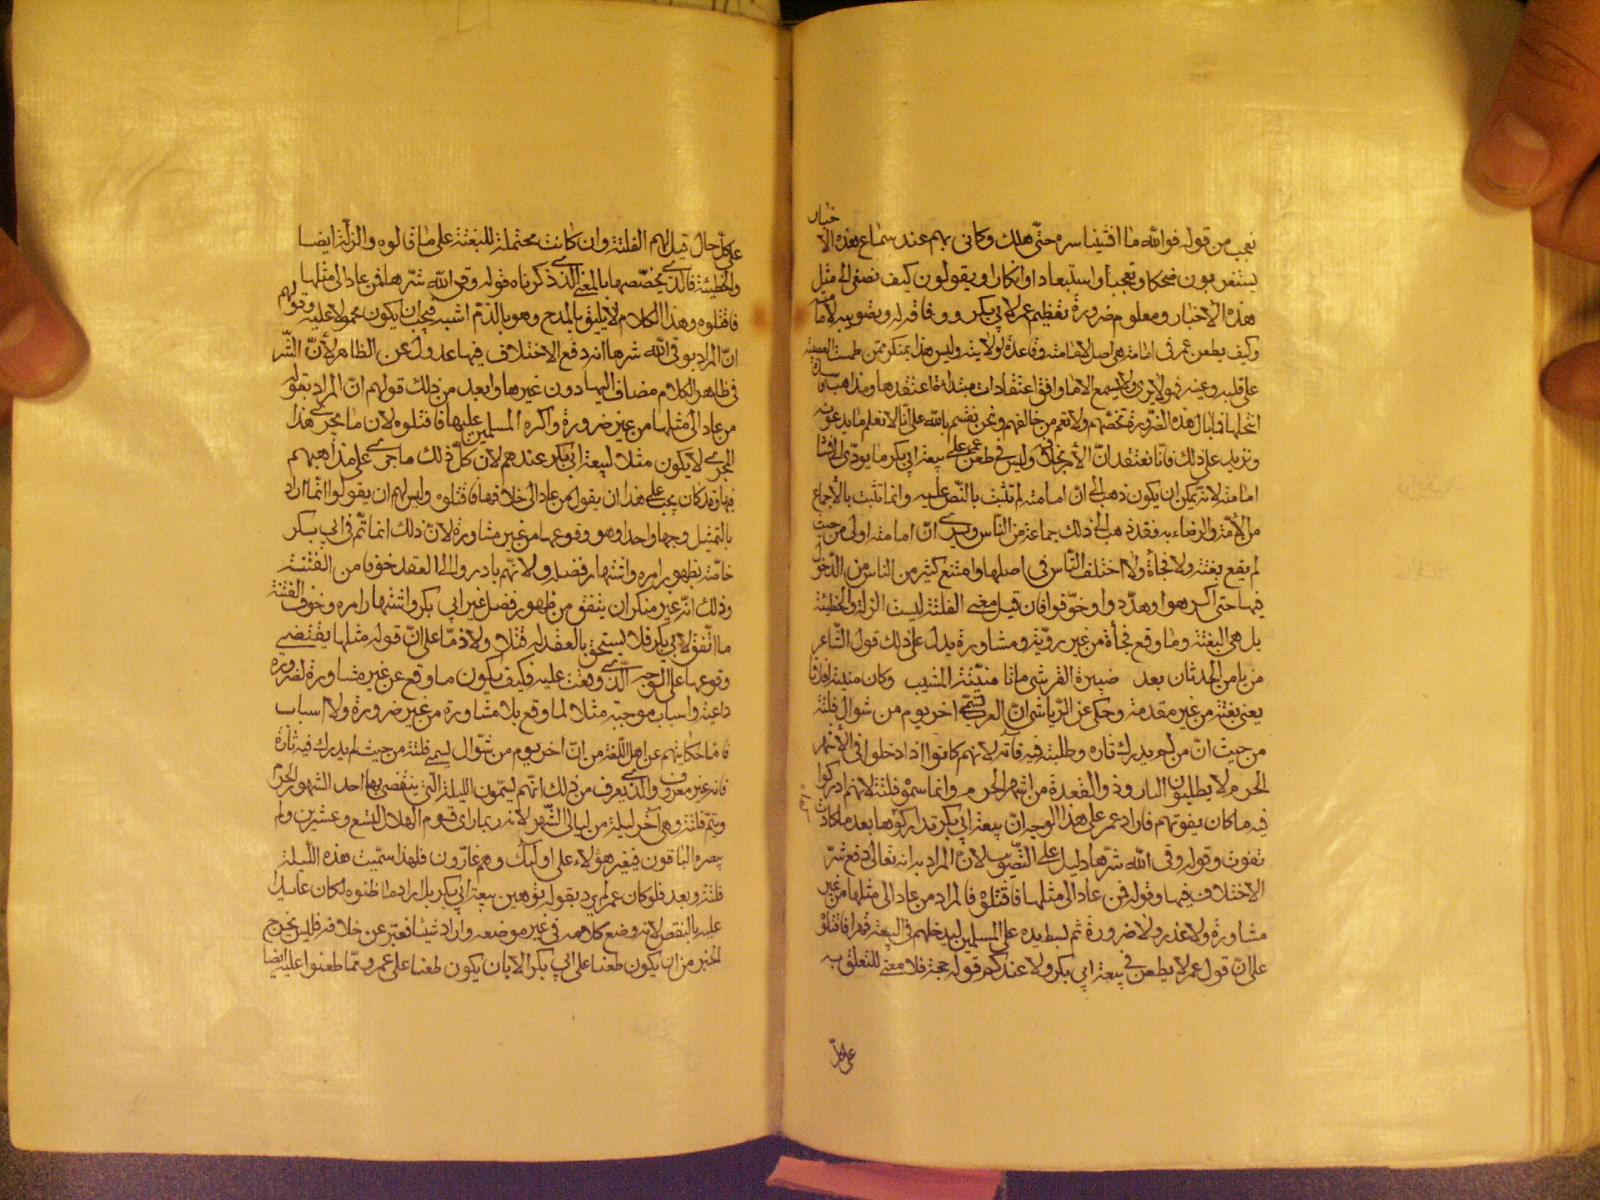 خبار
نعجب من قوله فوالله ما افشينا سره حتى هلك وكانى بهم عند سماع هذه الا
يستغربون ضحكا وتعجبا واستبعادا وانكارا ويقولون كيف نصغى الى مثل
هذه الاخبار ومعلوم ضرورة تعظيم عمر لابي بكر ووفاقه له وتصويبه لامامته
وكيف يطعن عمر فى امامة هى اصل لامامته وقاعدة لولايته وليس هذا بمنكر ممن طمست العصبية
على قلبه وعينه فهو لا يرى ولا يسمع الا ما وافق اعتقادات مبتدأة قد اعتقدها ومذاهب فاسدة
انتحلها فما بال هذه الضرورة تخصهم ولا تعم من خالفهم ونحن نقسم بالله على انا لا نعلم ما يدعونه
ونزيد على ذلك فانا نعتقد ان الامر بخلافه وليس فى طعن عمر على بيعة ابي بكر ما يؤدى الى فساد
امامته لانه يمكن ان يكون ذهب الى ان امامته لم تثبت بالنص عليه وانما تثبت بالاجماع
من الامة والرضاء به فقد ذهب الى ذلك جماعة من الناس ويرى ان امامته اولى من حيث
لم يقع بغتة ولا فجأة ولا اختلف الناس فى اصلها وامتنع كثير من الناس من الدخول
فيها حتى اكرهوا وهددوا وخوفوا فان قيل معنى الفلتة ليست الزلة والخطيئة
بل هى البغتة وما وقع فجأة من غير روية ومشاورة يدل على ذلك قول الشاعر
من يامن الحدثان بعد صبيرة القرشى ماتا منيته المشيب وكان منيته افتلاتا
يعنى بغتة من غير مقدمة وحكى عن الرياشى ان العرب تسمى آخر يوم من شوال فلتة
من حيث ان من لم يدرك ثاره وطلبته فيه فاته لانهم كانوا اذا دخلوا فى الاشهر
الحرم لا يطلبون الثار وذو القعدة من اشهر الحرم وانما سموه فلتة لانهم ادركوا
فيه ما كان يفوتهم فاراد عمر على هذا الوجه ان بيعة ابي بكر تداركوها بعد ما كادت
تفوت وقوله وقى الله شرها دليل على التصويب لان المراد به انه تعالى دفع شر
الاختلاف فيها وقوله فمن عاد الى مثلها فاقتلوه فالمراد من عاد الى مثلها من غير
مشاورة ولا عذر ولا ضرورة ثم بسط يده على المسلمين ليدخلهم فى البيعة قهرا فاقتلوه
على ان قول عمر لا يطعن فى بيعة ابي بكر ولا عندكم قوله حجة فلا معنى للتعلق به
على كل
على كل حال قيل لهم الفلتة وان كانت محتملة للبغتة على ما قالوه والزلة ايضا
والخطيئة فالذى يخصصها بالمعنى الذى ذكرناه قوله وقى الله شرها فمن عاد الى مثلها
فاقتلوه وهذا الكلام لا يليق بالمدح وهو بالذم اشبه فيجب ان يكون محمولا عليه وقولهم
ان المراد بوقى الله شرها انه دفع الاختلاف فيها عدول عن الظاهر لان الشر
فى ظاهر الكلام مضاف اليها دون غيرها وابعد من ذلك قولهم ان المراد بقوله
من عاد الى مثلها من غير ضرورة واكره المسلمين عليها فاقتلوه لان ما جرى هذا
المجرى لا يكون مثلا لبيعة ابي بكر عندهم لان كل ذلك ما جرى على مذاهبهم
فيها وقد كان يجب على هذا ان يقول من عاد الى خلافها فاقتلوه وليس لهم ان يقولوا انما اراد
بالتمثيل وجها واحدا وهو وقوعها من غير مشاورة لان ذلك انما تم فى ابي بكر
خاصة بظهور امره واشتهار فضله ولانهم بادروا الى العقد خوفا من الفتنة
وذلك انه غير منكر ان يتفق من ظهور فضل غير ابي بكر واشتهار امره وخوف الفتنة
ما اتفق لابي بكر فلا يستحق بالعقد له قتلا ولا ذما على ان قوله مثلها يقتضى
وقوعها على الوجه الذى وقعت عليه فكيف يكون ما وقع عن غير مشاورة لضرورة
داعية واسباب موجبة مثلا لما وقع بلا مشاورة من غير ضرورة ولا اسباب
فاما حكايتهم عن اهل اللغة من ان آخر يوم من شوال يسمى فلتة من حيث لم يدرك فيه ثاره
فانه غير معروف والذى يعرف من ذلك انهم يسمون الليلة التى ينقضى بها احد الشهور الحرم
ويتم فلتة وهى آخر ليلة من ليالى الشهر لانه ربما راى قوم الهلال لتسع وعشرين ولم
يبصره الباقون فيغير هؤلاء على اولئك وهم غارون فلهذا سميت هذه الليلة
فلتة وبعد فلو كان عمر لم يرد بقوله توهين بيعة ابي بكر بل اراد ما ظنوه لكان عائدا
عليه بالنقص لانه وضع كلامه فى غير موضعه واراد شيئا فعبر عن خلافه فليس يخرج
الخبر من ان يكون طعنا على ابي بكر الا بان يكون طعنا على عمر ومما طعنوا عليه ايضا